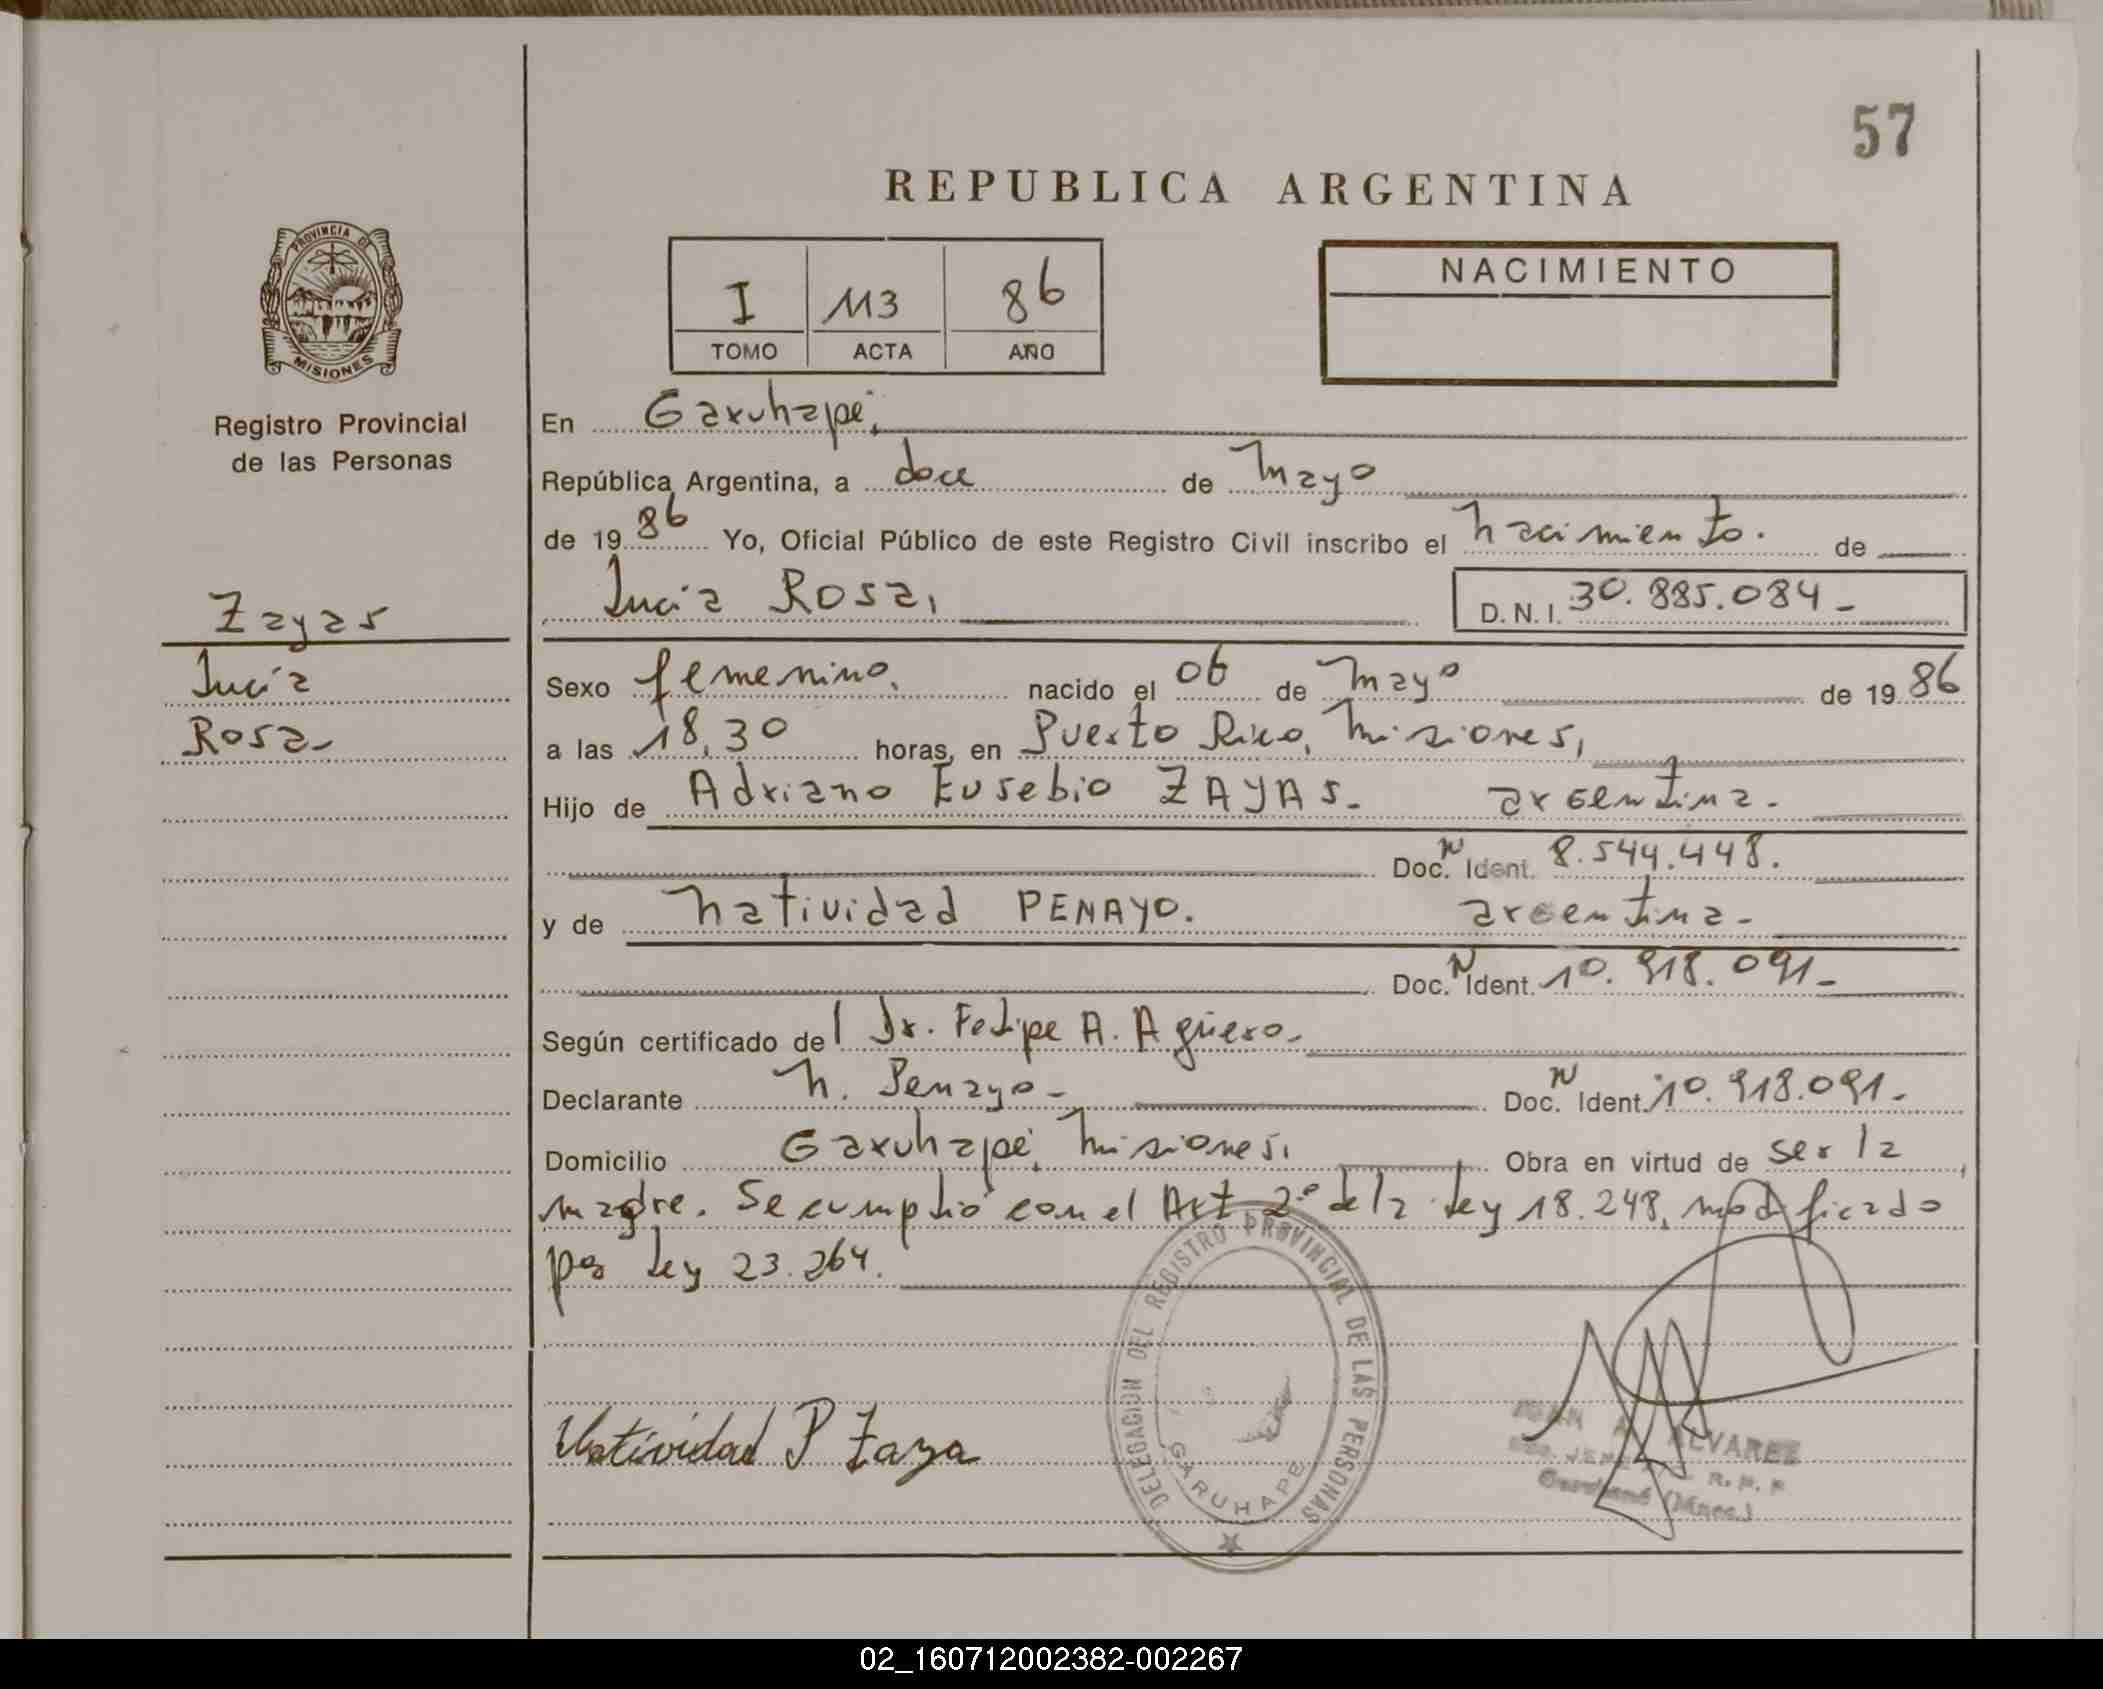 57
REPUBLICA ARGENTINA
PROVINCIA DE
MISIONES
Registro Provincial
de las Personas
I 113 86
TOMO ACTA AÑO
NACIMIENTO
En Garuhapé,
República Argentina, a doce de Mayo
de 1986 Yo, Oficial Público de este Registro Civil inscribo el nacimiento. de
Lucía Rosa, D.N.I. 30.885.084-
Zayas
Lucía
Rosa-
Sexo femenino. nacido el 06 de Mayo de 1986
a las 18,30 horas, en Puerto Rico, Misiones,
Hijo de Adriano Eusebio ZAYAS- argentina.
Doc. N Ident. 8.544.448.
y de Natividad PENAYO. argentina-
Doc. N Ident. 10.918.091-
Según certificado del Dr. Felipe A. Agüero-
Declarante N. Penayo- Doc. N Ident. 10.918.091-
Domicilio Garuhapé, Misiones, Obra en virtud de ser la
madre. Se cumplió con el Art 2º de la Ley 18.248, modificado
por Ley 23.264.
DELEGACION DEL REGISTRO PROVINCIAL DE LAS PERSONAS
GARUHAPE
Natividad P Zaya
ALVAREZ
R. P. P
(Mnes.)
02_160712002382-002267